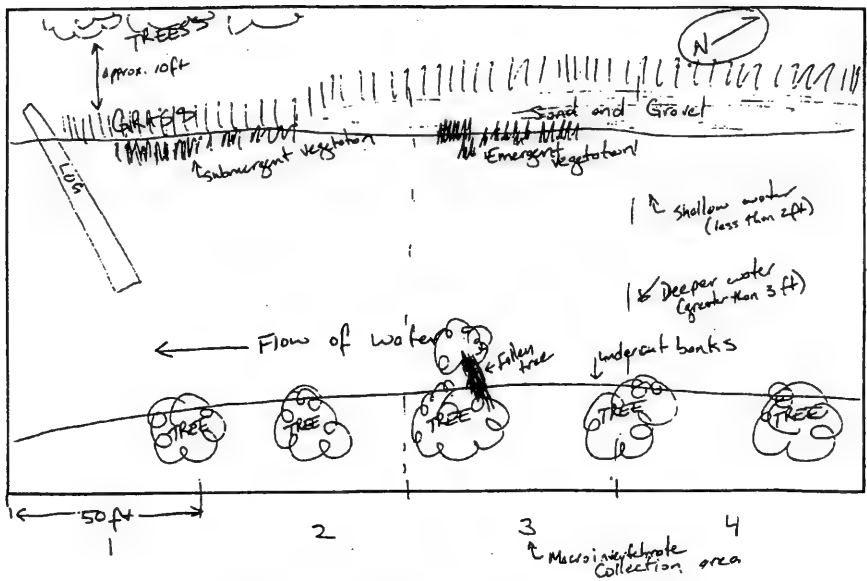 TREES
N
approx. 10ft
GRASS
Sand and Gravel
submergent vegetation
Emergent
vegetation
LOG
Shallow water
(less than 2ft)
Deeper water
(greater than 3 ft)
Flow of water
Fallen
tree
undercut banks
TREE
TREE
TREE
TREE
TREE
50ft
1
2
3
4
Macroinvertebrate
Collection area